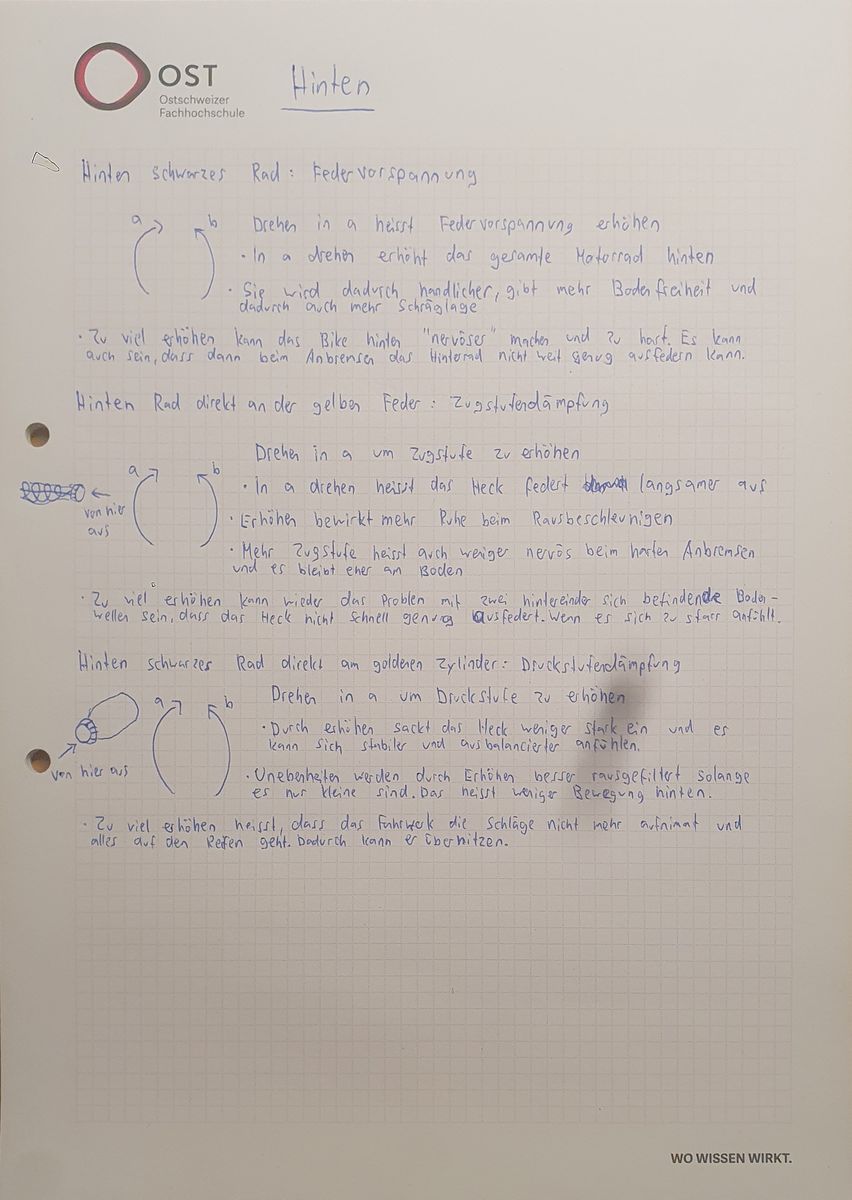 OST
Ostschweizer
Fachhochschule
Hinten
Hinten schwarzes Rad: Federvorspannung
a b Drehen in a heisst Federvorspannung erhöhen
· In a drehen erhöht das gesamte Motorrad hinten
· Sie wird dadurch handlicher, gibt mehr Bodenfreiheit und
dadurch auch mehr Schräglage
· Zu viel erhöhen kann das Bike hinten "nervöser" machen und zu hart. Es kann
auch sein, dass dann beim Anbremsen das Hinterrad nicht weit genug ausfedern kann.
Hinten Rad direkt an der gelben Feder: Zugstufendämpfung
Drehen in a um Zugstufe zu erhöhen
a b
· In a drehen heisst das Heck federt langsamer aus
von hier
aus
· Erhöhen bewirkt mehr Ruhe beim Rausbeschleunigen
· Mehr Zugstufe heisst auch weniger nervös beim harten Anbremsen
und es bleibt eher am Boden
· Zu viel erhöhen kann wieder das Problem mit zwei hintereinder sich befindende Boden-
wellen sein, dass das Heck nicht schnell genug ausfedert. Wenn es sich zu starr anfühlt.
Hinten schwarzes Rad direkt am goldenen Zylinder: Druckstufendämpfung
a b Drehen in a um Druckstufe zu erhöhen
· Durch erhöhen sackt das Heck weniger stark ein und es
kann sich stabiler und ausbalancierter anfühlen.
von hier aus
· Unebenheiten werden durch Erhöhen besser rausgefiltert solange
es nur kleine sind. Das heisst weniger Bewegung hinten.
· Zu viel erhöhen heisst, dass das Fahrwerk die Schläge nicht mehr aufnimmt und
alles auf den Reifen geht. Dadurch kann er überhitzen.
WO WISSEN WIRKT.